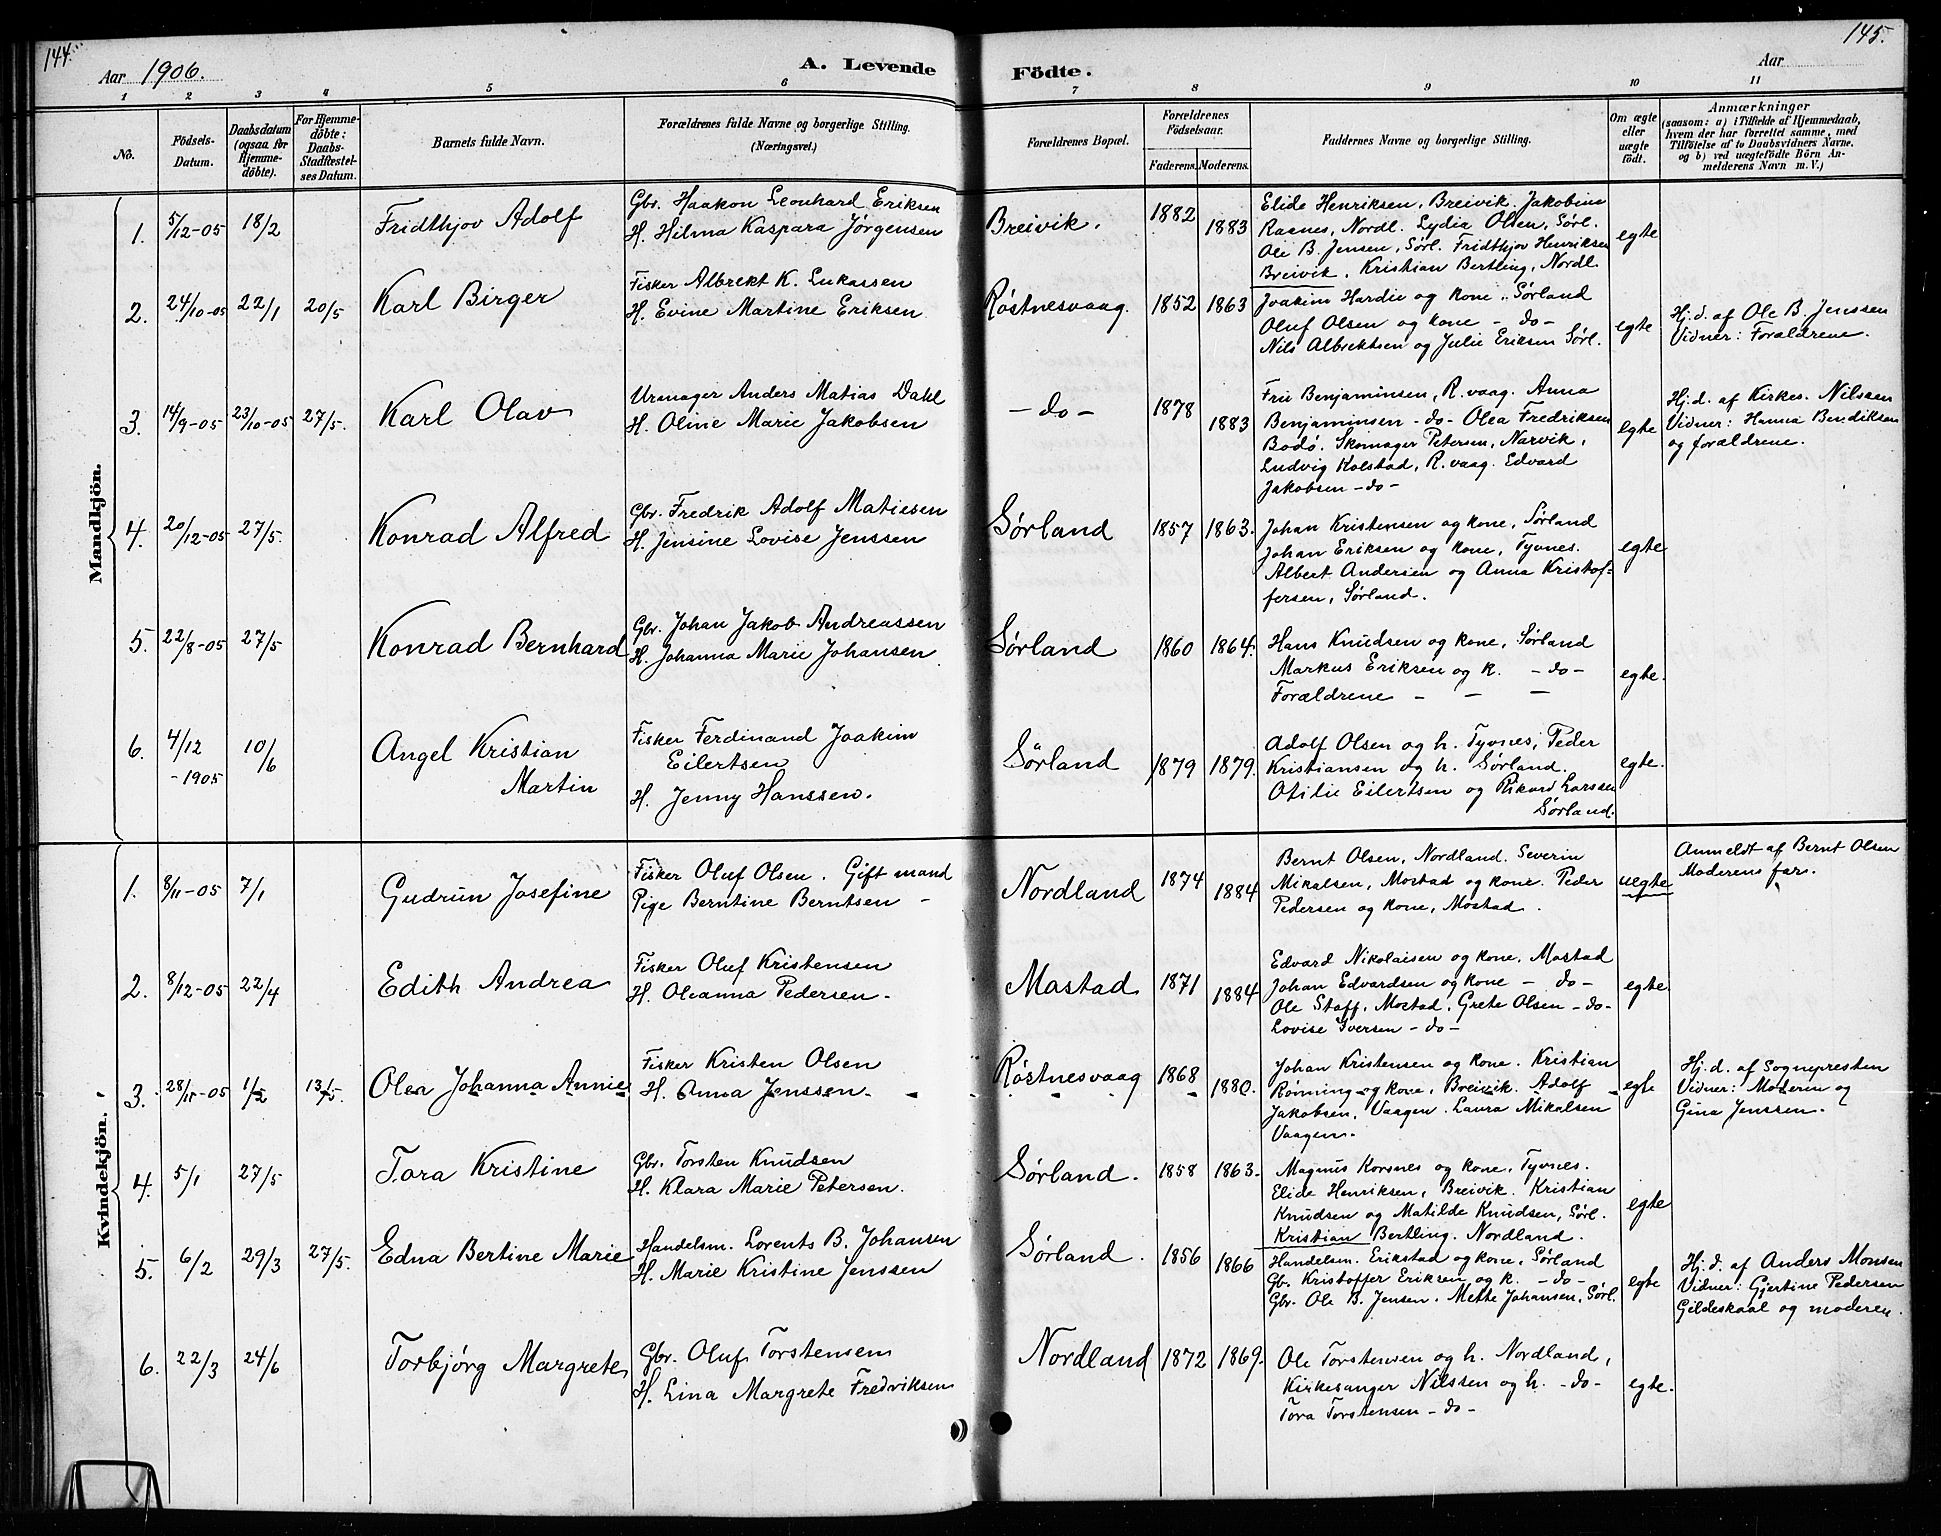 144.
145.
Aar 1906.
A. Levende
Födte.
Aar
1 2 3 4 5 6 7 8 9 10 11
No.
Födsels-Datum.
Daabsdatum (ogsaa for Hjemmedöbte).
For Hjemmedöbte: Daabs-Stadfæstelses Datum.
Barnets fulde Navn.
Forældrenes fulde Navne og borgerlige Stilling. (Næringsvei.)
Forældrenes Bopæl.
Forældrenes Födselsaar.
Faderens. Moderens.
Faddernes Navne og borgerlige Stilling.
Om ægte eller uægte födt.
Anmærkninger (saasom: a) i Tilfælde af Hjemmedaab, hvem der har forrettet samme, med Tilföielse af to Daabsvidners Navne, og b) ved uægtefödte Börn Anmelderens Navn m. V.)
Mandkjön.
1. 5/12-05 18/2 Fridthjov Adolf
Gbr. Haakon Leonhard Eriksen
H. Hilma Kaspara Jørgensen
Breivik. 1882 1883
Elide Henriksen, Breivik. Jakobine
Rasnes, Nordl. Lydia Olsen, Sørl.
Ole B. Jensen, Sørl. Fridthjov Henriksen
Breivik. Kristian Bertling, Nordl.
egte
2. 24/10-05 22/1 20/5 Karl Birger
Fisker Albrekt K. Lukassen
H. Evine Martine Eriksen
Røstnesvaag. 1852 1863
Joakim Hardie og kone. Sørland
Oluf Olsen og kone - do -
Nils Albrektsen og Julie Eriksen Sørl.
egte
Hj.d. af Ole B. Jenssen
Vidner: Forældrene.
3. 14/9-05 23/10-05 27/5. Karl Olav
Urmager Anders Matias Dahl
H. Oline Marie Jakobsen
- do - 1878 1883
Fru Benjaminsen, R.vaag. Anna
Benjaminsen - do - Olea Fredriksen
Bodø. Skomager Petersen, Narvik,
Ludvig Kolstad, R.vaag. Edvard
Jakobsen - do -
egte
Hj.d. af Kirkes. Nilssen
Vidner: Hanna Bendiksen
og forældrene.
4. 20/12-05 27/5. Konrad Alfred
Gbr. Fredrik Adolf Matiesen
H. Jensine Lovise Jenssen
Sørland 1857 1863.
Johan Kristensen og kone, Sørland
Johan Eriksen og kone, Tyvnes.
Albert Andersen og Anna Kristof-
fersen, Sørland.
egte
5. 22/8-05 27/5 Konrad Bernhard
Gbr. Johan Jakob Andreassen
H. Johanna Marie Johansen
Sørland 1860 1864.
Hans Knudsen og kone, Sørland
Markus Eriksen og k. - do -
Forældrene - - -
egte.
6. 4/12-1905 10/6 Angel Kristian
Martin
Fisker Ferdinand Joakim
Eilertsen
H. Jenny Hanssen.
Sørland 1879 1879.
Adolf Olsen og h. Tyvnes, Peder
Kristiansen og h. Sørland.
Otilie Eilertsen og Rikard Larssen
Sørland.
egte.
Kvindekjön.
1. 8/11-05 7/1 Gudrun Josefine
Fisker Oluf Olsen. Gift mand
Pige Berntine Berntsen -
Nordland 1874 1884
Bernt Olsen, Nordland. Severin
Mikalsen, Mostad og kone. Peder
Pedersen og kone, Mostad.
uegte
Anmeldt af Bernt Olsen
Moderens far.
2. 8/12-05 22/4 Edith Andrea
Fisker Oluf Kristensen
H. Oleanna Pedersen.
Mastad 1871 1884
Edvard Nikolaisen og kone. Mostad
Johan Edvardsen og kone - do -
Ole Staff, Mostad. Grete Olsen - do -
Lovise Iversen - do -
egte.
3. 28/11-05 1/2 13/5. Olea Johanna Annie
Fisker Kristen Olsen
H. Anna Jenssen.
Røstnesvaag 1868 1880.
Johan Kristensen og kone. Kristian
Rønning og kone, Breivik. Adolf
Jakobsen, Vaagen. Laura Mikalsen
Vaagen.
egte
Hj.d. af Sognepresten
Vidner: Moderen og
Gina Jenssen.
4. 5/1 27/5 Tora Kristine
Gbr. Torsten Knudsen
H. Klara Marie Petersen.
Sørland. 1858 1863.
Magnus Korsnes og kone, Tyvnes.
Elide Henriksen, Breivik. Kristian
Knudsen og Matilde Knudsen, Sørl.
Kristian Bertling. Nordland.
egte
5. 6/2 29/3 27/5. Edna Bertine Marie
Handelsm. Lorents B. Johansen
H. Marie Kristine Jenssen
Sørland. 1856 1866
Handelsm. Erikstad og kone, Sørland
Gb. Kristoffer Eriksen og k. - do -
Gbr. Ole B. Jensen. Mette Johansen, Sørl.
egte
Hj.d. af Anders Monsen
Vidner: Gjertine Pedersen
Gildeskaal og moderen.
6. 22/3 24/6 Torbjørg Margrete
Gbr. Oluf Torstensen
H. Lina Margrete Fredriksen
Nordland 1872 1869.
Ole Torstensen og h. Nordland,
Kirkesanger Nilssen og h. - do -
Tora Torstensen - do -
egte.